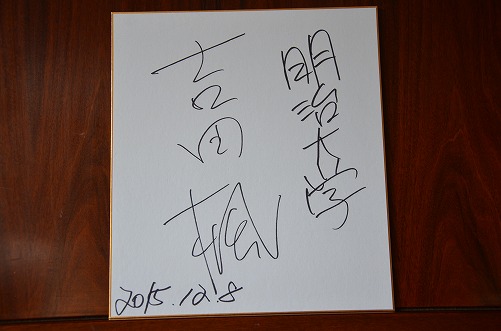 明治大学
吉田 楓
2015.12.8